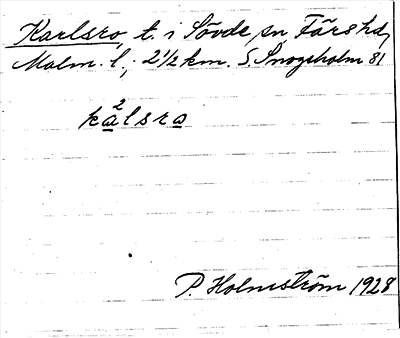 Karlsro, t. i Sövde sn Färs hd,
Malm. l., 2 1/2 km. S. Snogeholm 81
2
kalsro
P. Holmström 1928